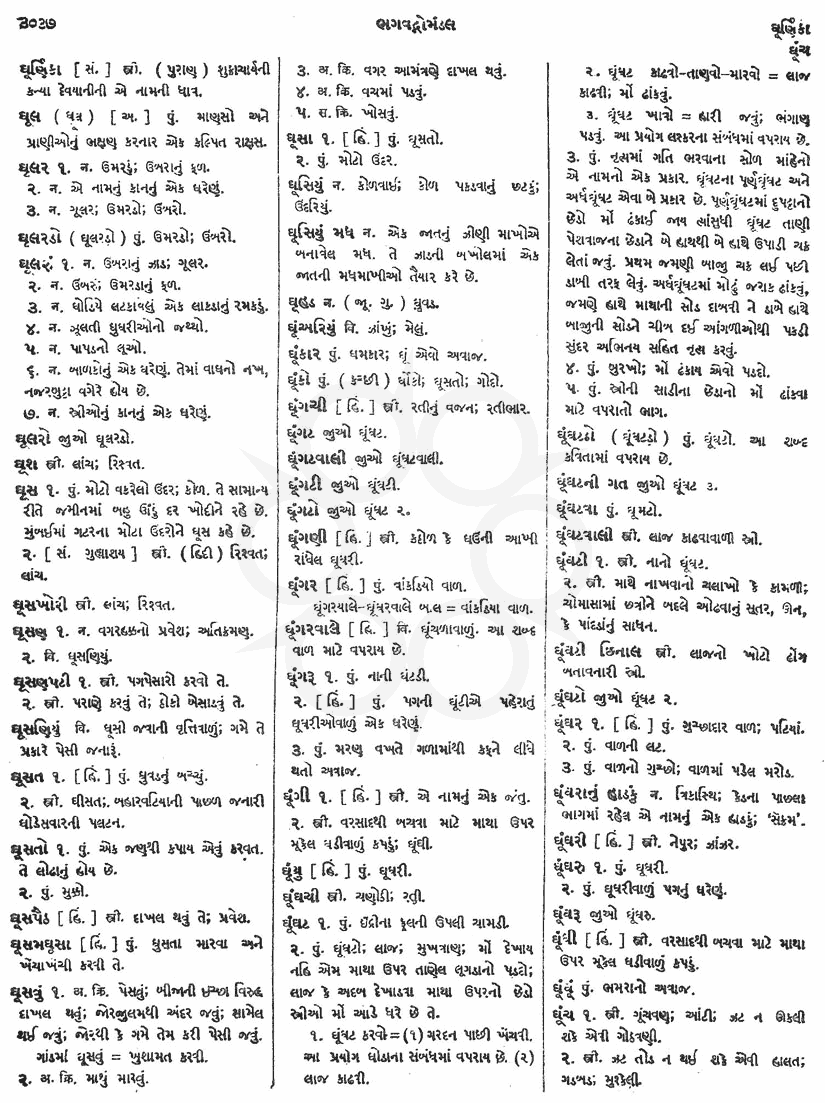 ૩૦૨૭
ભગવદ્ગોમંડલ
ઘૂર્ણિકા
ઘૂંચ
ઘૂર્ણિકા [ સં. ] સ્ત્રી. ( પુરાણ ) શુક્રાચાર્યની
કન્યા દેવયાનીની એ નામની ધાત્ર.
ઘૂલ ( ઘૂલ ) [ અ. ] પું. માણસો અને
પ્રાણીઓનું ભક્ષણ કરનાર એક કલ્પિત રાક્ષસ.
ઘૂલર ૧. ન. ઉમરડું; ઉંબરાનું ફળ.
૨. ન. એ નામનું કાનનું એક ઘરેણું.
૩. ન. ગૂલર; ઉમરડો; ઉંબરો.
ઘૂલરડો ( ઘૂલરડ઼ો ) પું. ઉમરડો; ઉંબરો.
ઘૂલરું ૧. ન. ઉંબરાનું ઝાડ; ગૂલર.
૨. ન. ઉંબરું; ઉમરડાનું ફળ.
૩. ન. ઘોડિયે લટકાવેલું એક લાકડાનું રમકડું.
૪. ન. ઝૂલતી ઘુઘરીઓનો જથ્થો.
૫. ન. પાપડનો લૂઓ.
૬. ન. બાળકોનું એક ઘરેણું. તેમાં વાઘનો નખ,
નજરબટ્ટુ વગેરે હોય છે.
૭. ન. સ્ત્રીઓનું કાનનું એક ઘરેણું.
ઘૂલરો જુઓ ઘૂલરડો.
ઘૂશ સ્ત્રી. લાંચ; રિશ્વત.
ઘૂસ ૧. પું. મોટો વકરેલો ઉંદર; કોળ. તે સામાન્ય
રીતે જમીનમાં બહુ ઊંડું દર ખોદીને રહે છે.
મુંબઈમાં ગટરના મોટા ઉંદરોને ઘૂસ કહે છે.
૨. [ સં. ગુહ્યાશય ] સ્ત્રી. ( હિંદી ) રિશ્વત;
લાંચ.
ઘૂસખોરી સ્ત્રી. લાંચ; રિશ્વત.
ઘૂસણ ૧. ન. વગરહક્કનો પ્રવેશ; અતિક્રમણ.
૨. વિ. ઘૂસણિયું.
ઘૂસણપટી ૧. સ્ત્રી. પગપેસારો કરવો તે.
૨. સ્ત્રી. પરાણે કરવું તે; ઠોકી બેસાડવું તે.
ઘૂસણિયું વિ. ઘૂસી જવાની વૃત્તિવાળું; ગમે તે
પ્રકારે પેસી જનારું.
ઘૂસત ૧. [ હિં. ] પું. ઘુવડનું બચ્ચું.
૨. સ્ત્રી. ઘીસત; બહારવટિયાની પાછળ જનારી
ઘોડેસવારની પલટન.
ઘૂસતો ૧. પું. એક જણથી કપાય એવું કરવત.
તે લોઢાનું હોય છે.
૨. પું. મુક્કો.
ઘૂસપૈઠ [ હિં. ] સ્ત્રી. દાખલ થવું તે; પ્રવેશ.
ઘૂસમઘૂસા [ હિં. ] પું. ઘુસતા મારવા અને
ખેંચાખેંચી કરવી તે.
ઘૂસવું ૧. અ. ક્રિ. પેસવું; બીજાની ઇચ્છા વિરુદ્ધ
દાખલ થવું; જોરજુલમથી અંદર જવું; સામેલ
થઈ જવું; જોરથી કે ગમે તેમ કરી પેસી જવું.
ગાંડમાં ઘૂસવું = ખુશામત કરવી.
૨. અ. ક્રિ. માથું મારવું.
૩. અ. ક્રિ. વગર આમંત્રણે દાખલ થવું.
૪. અ. ક્રિ. વચમાં પડવું.
૫. સ. ક્રિ. ખોસવું.
ઘૂસા ૧. [ હિં. ] પું. ઘૂસતો.
૨. પું. મોટો ઉંદર.
ઘૂસિયું ન. કોળવાઈ; કોળ પકડવાનું છટકું;
ઉંદરિયું.
ઘૂસિયું મધ ન. એક જાતનું ઝીણી માખોએ
બનાવેલ મધ. તે ઝાડની બખોલમાં એક
જાતની મધમાખીઓ તૈયાર કરે છે.
ઘૂહડ ન. ( જૂ. ગુ. ) ઘુવડ.
ઘૂંઅરિયું વિ. ઝાંખું; મેલું.
ઘૂંકાર પું. ઘમકાર; ઘૂં એવો અવાજ.
ઘૂંકો પું. ( કચ્છી ) ધોંકો; ઘૂસતો; ગોદો.
ઘૂંગચી [ હિં. ] સ્ત્રી. રતીનું વજન; રતીભાર.
ઘૂંગટ જુઓ ઘૂંઘટ.
ઘૂંગટવાલી જુઓ ઘૂંઘટવાલી.
ઘૂંગટી જુઓ ઘૂંઘટી.
ઘૂંગટો જુઓ ઘૂંઘટ ૨.
ઘૂંગણી [ હિં. ] સ્ત્રી. કઠોળ કે ઘઉંની આખી
રાંધેલ ઘૂઘરી.
ઘૂંગર [ હિં. ] પું. વાંકડિયો વાળ.
ઘૂંગરયાલે-ઘૂંઘરવાલે બાલ = વાંકડિયા વાળ.
ઘૂંગરવાલે [ હિં. ] વિ. ઘૂંચળાવાળું. આ શબ્દ
વાળ માટે વપરાય છે.
ઘૂંગરૂ ૧. પું. નાની ઘંટડી.
૨. [ હિં. ] પું. પગની ઘૂંટીએ પહેરાતું
ઘૂઘરીઓવાળું એક ઘરેણું.
૩. પું. મરણ વખતે ગળામાંથી કફને લીધે
થતો અવાજ.
ઘૂંગી ૧. [ હિં. ] સ્ત્રી. એ નામનું એક જંતુ.
૨. સ્ત્રી. વરસાદથી બચવા માટે માથા ઉપર
મૂકેલ ઘડીવાળું કપડું; ઘૂંઘી.
ઘૂંગુ [ હિં. ] પું. ઘૂઘરી.
ઘૂંઘચી સ્ત્રી. ચણોઠી; રતી.
ઘૂંઘટ ૧. પું. ઇંદ્રીના ફૂલની ઉપલી ચામડી.
૨. પું. ઘૂંઘટો; લાજ; મુખત્રાણ; મોં દેખાય
નહિ એમ માથા ઉપર તાણેલ લૂગડાનો પડદો;
લાજ કે અદબ દેખાડવા માથા ઉપરનો છેડો
સ્ત્રીઓ મોં આડે ધરે છે તે.
૧. ઘૂંઘટ કરવો=(૧) ગરદન પાછી ખેંચવી.
આ પ્રયોગ ઘોડાના સંબંધમાં વપરાય છે. (૨)
લાજ કાઢવી.
૨. ઘૂંઘટ કાઢવો-તાણવો-મારવો = લાજ
કાઢવી; મોં ઢાંકવું.
૩. ઘૂંઘટ ખાવો = હારી જવું; ભંગાણ
પડવું. આ પ્રયોગ લશ્કરના સંબંધમાં વપરાય છે.
૩. પું. નૃત્યમાં ગતિ ભરવાના સોળ માંહેનો
એ નામનો એક પ્રકાર. ઘૂંઘટના પૂર્ણઘૂંઘટ અને
અર્ધઘૂંઘટ એવા બે પ્રકાર છે. પૂર્ણઘૂંઘટમાં દુપટ્ટાનો
છેડો મોં ઢંકાઈ જાય ત્યાંસુધી ઘૂંઘટ તાણી
પેશવાજના છેડાને બે હાથથી બે હાથે ઉપાડી ચક્ર
લેતાં જવું. પ્રથમ જમણી બાજુ ચક્ર લઈ પછી
ડાબી તરફ લેવું. અર્ધઘૂંઘટમાં મોઢું જરાક ઢાંકવું,
જમણે હાથે માથાની સોડ દાબવી ને ડાબે હાથે
બાજુની સોડને ચીમટ દઈ આંગળીઓથી પકડી
સુંદર અભિનય સહિત નૃત્ય કરવું.
૪. પું. બુરખો; મોં ઢંકાય એવો પડદો.
૫. પું. સ્ત્રીની સાડીના છેડાનો મોં ઢાંકવા
માટે વપરાતો ભાગ.
ઘૂંઘટડો ( ઘૂંઘટડ઼ો ) પું. ઘૂંઘટો. આ શબ્દ
કવિતામાં વપરાય છે.
ઘૂંઘટની ગત જુઓ ઘૂંઘટ ૩.
ઘૂંઘટવા પું. ઘૂમટો.
ઘૂંઘટવાલી સ્ત્રી. લાજ કાઢવાવાળી સ્ત્રી.
ઘૂંઘટી ૧. સ્ત્રી. નાનો ઘૂંઘટ.
૨. સ્ત્રી. માથે નાખવાનો ચલાખો કે કામળી;
ચોમાસામાં છત્રીને બદલે ઓઢવાનું સૂતર, ઊન,
કે પાંદડાંનું સાધન.
ઘૂંઘટી છિનાલ સ્ત્રી. લાજનો ખોટો ઢોંગ
બતાવનારી સ્ત્રી.
ઘૂંઘટો જુઓ ઘૂંઘટ ૨.
ઘૂંઘર ૧. [ હિં. ] પું. ગુચ્છાદાર વાળ; પટિયાં.
૨. પું. વાળની લટ.
૩. પું. વાળનો ગુચ્છો; વાળમાં પડેલ મરોડ.
ઘૂંઘરાનું હાડકું ન. ત્રિકાસ્થિ; કેડના પાછલા
ભાગમાં રહેલ એ નામનું એક હાડકું; ‘સૅક્રમ’.
ઘૂંઘરી [ હિં. ] સ્ત્રી. નેપુર; ઝાંઝર.
ઘૂંઘરુ ૧. પું. ઘૂઘરી.
૨. પું. ઘૂઘરીવાળું પગનું ઘરેણું.
ઘૂંઘરૂ જુઓ ઘૂંઘરુ.
ઘૂંઘી [ હિં. ] સ્ત્રી. વરસાદથી બચવા માટે માથા
ઉપર મૂકેલ ઘડીવાળું કપડું.
ઘૂંઘૂં પું. ભમરાનો અવાજ.
ઘૂંચ ૧. સ્ત્રી. ગૂંચવણ; આંટી; ઝટ ન ઊકલી
શકે એવી ગોઠવણી.
૨. સ્ત્રી. ઝટ તોડ ન થઈ શકે એવી હાલત;
ગડબડ; મુશ્કેલી.